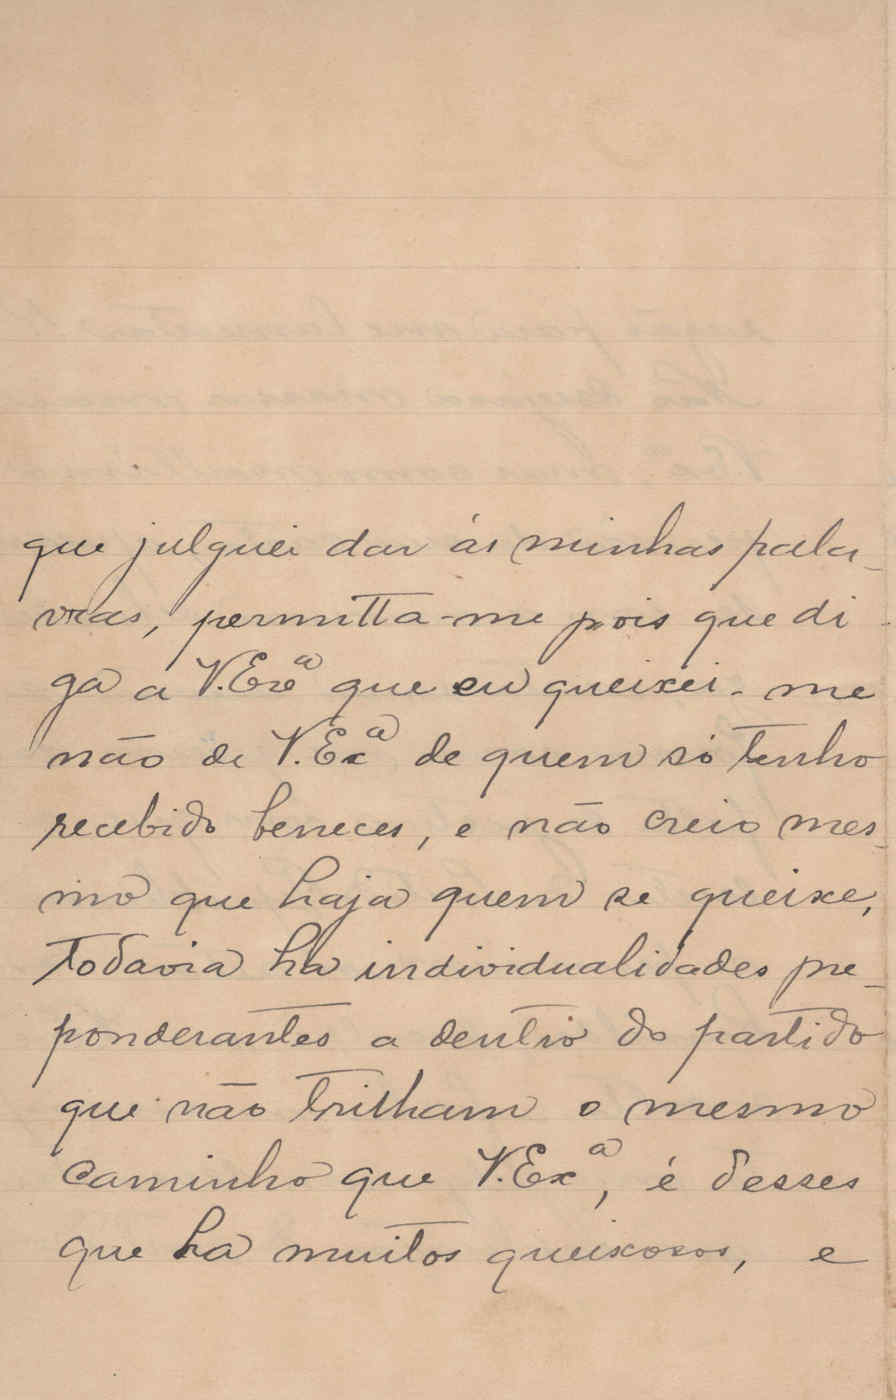 que julguei dar ás minhas pala-
vras, permitta-me pois que di-
ga a V.Exª que eu queixei-me
não de V.Exª de quem só tenho
recebido beneces, e não creio mes-
mo que haja quem se queixe,
todavia ha individualidades pre-
ponderantes a dentro do partido
que não trilham o mesmo
caminho que V.Exª, é desses
que ha muitos queixosos, e